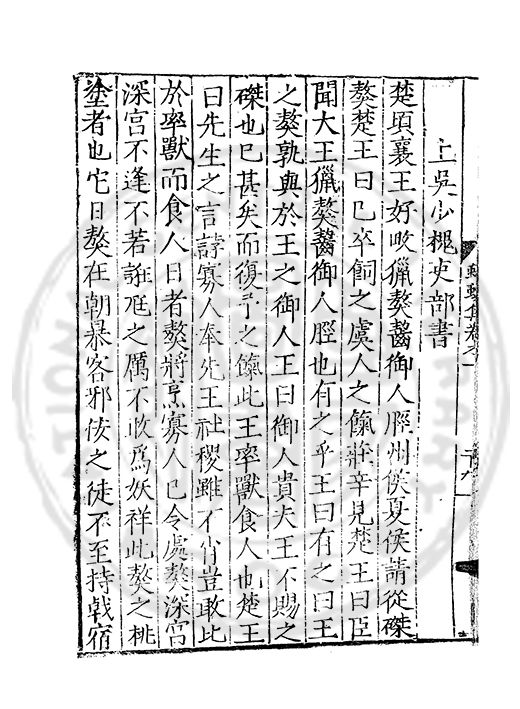 上吳少槐吏部書
楚頃襄王好畋獵獒齧御人脛州侯夏侯請從磔
獒楚王曰已卒飼之虞人之餼莊辛見楚王曰臣
聞大王獵獒齧御人脛也有之乎王曰有之曰王
之獒孰與於王之御人王曰御人貴夫王不賜之
磔也已甚矣而復予之餼此王率獸食人也楚王
曰先生之言誖寡人奉先王社稷雖不肖豈敢比
於率獸而食人日者獒將烹寡人已令處獒深宮
深宮不逢不若誑尫之厲不收為妖祥此獒之桃
塗者也它日獒在朝暴客邪佞之徒不至持戟宿
蠛蠓集卷之一